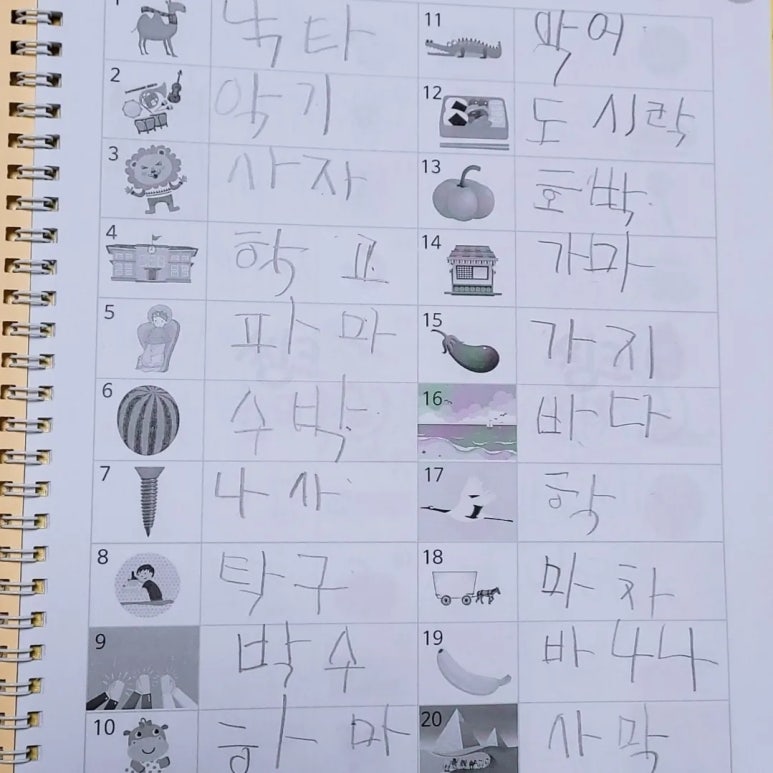 1 낙타
2 악기
3 사자
4 학교
5 파마
6 수박
7 나사
8 탁구
9 박수
10 하마
11 악어
12 도시락
13 호박
14 가마
15 가지
16 바다
17 학
18 마차
19 바나나
20 사막